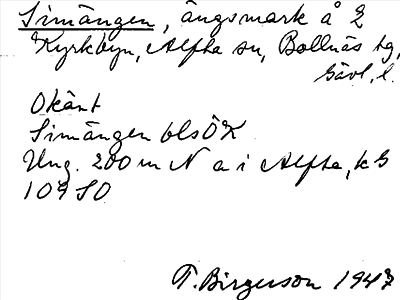 Simängen, ängsmark å 2
Kyrkbyn, Alfta sn, Bollnäs tg,
Gävl. l.
Okänt
Simängen blsÖK
Ung. 200 m N a i Alfta, k G
109 SO
T. Birgerson 1947